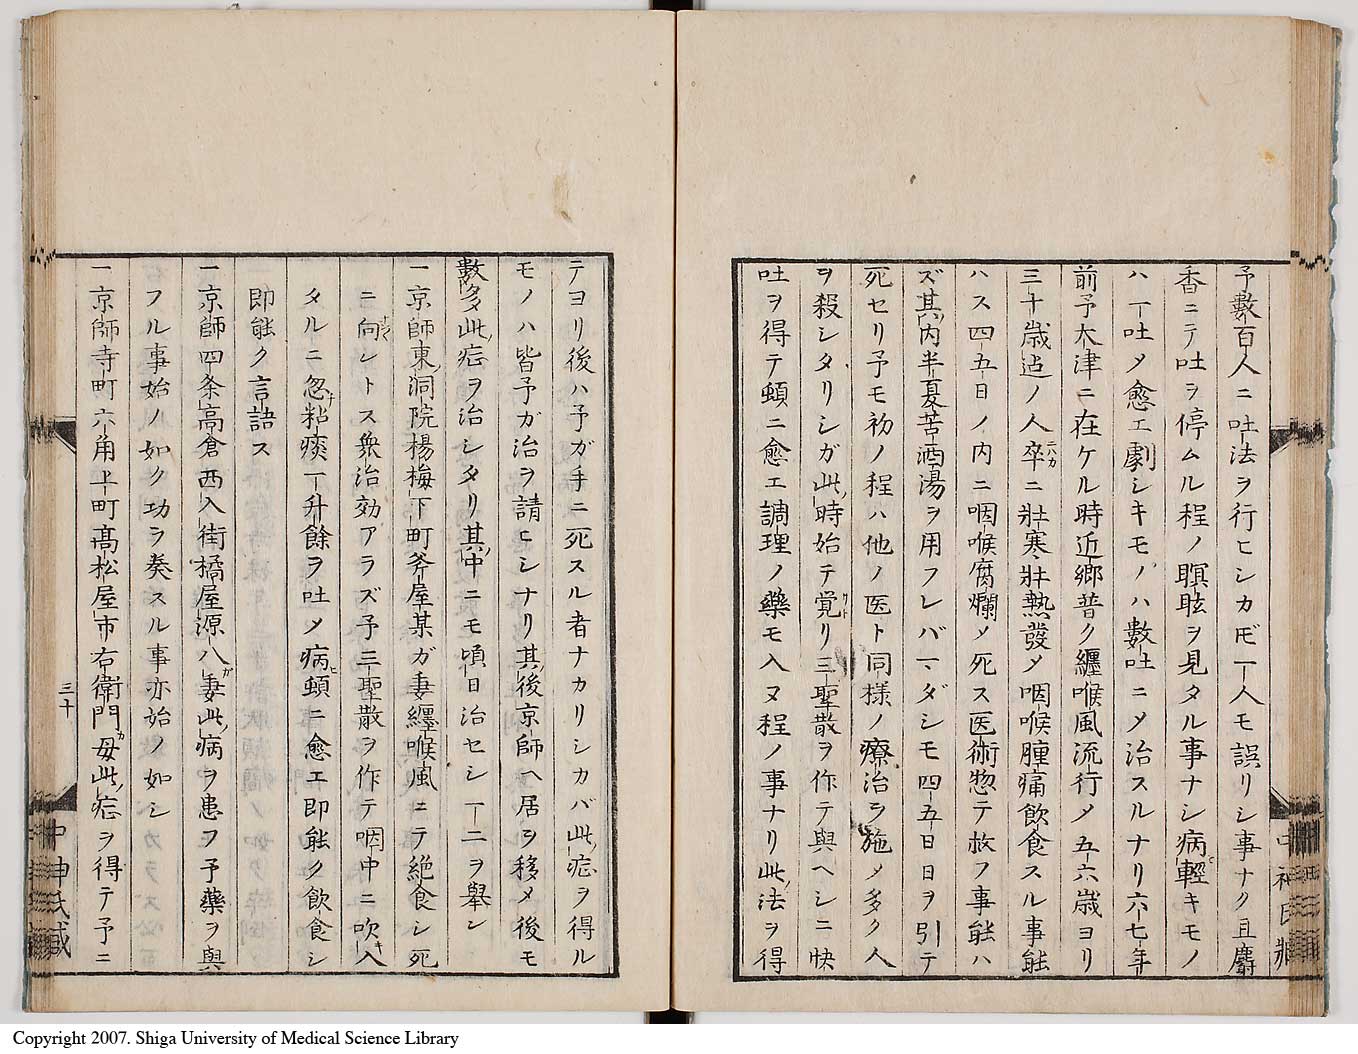 予數百人ニ吐法ヲ行ヒシカ𪜈一人モ誤リシ事ナク且麝
香ニテ吐ヲ停ムル程ノ瞑眩ヲ見タル事ナシ病輕キモノ
ハ一吐乄愈エ劇シキモノハ數吐ニ乄治スルナリ六七年
前予大津ニ在ケル時近鄉普ク纏喉風流行乄五六歳ヨリ
三十歳迠ノ人卒ニ壯寒壯熱發乄咽喉腫痛飲食スル事能
ハス四五日ノ内ニ咽喉腐爛乄死ス医術惣テ救フ事能ハ
ズ其内半夏苦酒湯ヲ用フレバ一ヽダシモ四五日日ヲ引テ
死セリ予モ初ノ程ハ他ノ医ト同様ノ療治ヲ施乄多ク人
ヲ殺シタリシガ此時始テ覚リ三聖散ヲ作テ與ヘシニ快
吐ヲ得テ頓ニ愈エ調理ノ藥モ入ヌ程ノ事ナリ此法ヲ得
中神氏藏
テヨリ後ハ予ガ手ニ死スル者ナカリシカバ此症ヲ得ル
モノハ皆予ガ治ヲ請ヒシナリ其後京師ヘ居ヲ移メ後モ
數多此症ヲ治シタリ其中ニモ頃日治セシ一二ヲ舉ン
一京師東洞院楊梅下町斧屋某ガ妻纏喉風ニテ絶食シ死
ニ向ントス衆治効アラズ予三聖散ヲ作テ咽中ニ吹入
タルニ忽粘痰一升餘ヲ吐乄病頓ニ愈エ即能ク飲食シ
即能ク言語ス
一京師四条高倉西入街橘屋源八妻此病ヲ患フ予藥ヲ與
フル事始ノ如ク功ヲ奏スル事亦始ノ如シ
一京師寺町六角上町髙松屋市右衛門母此症ヲ得テ予ニ
三十
中神氏藏
Copyright 2007. Shiga University of Medical Science Library